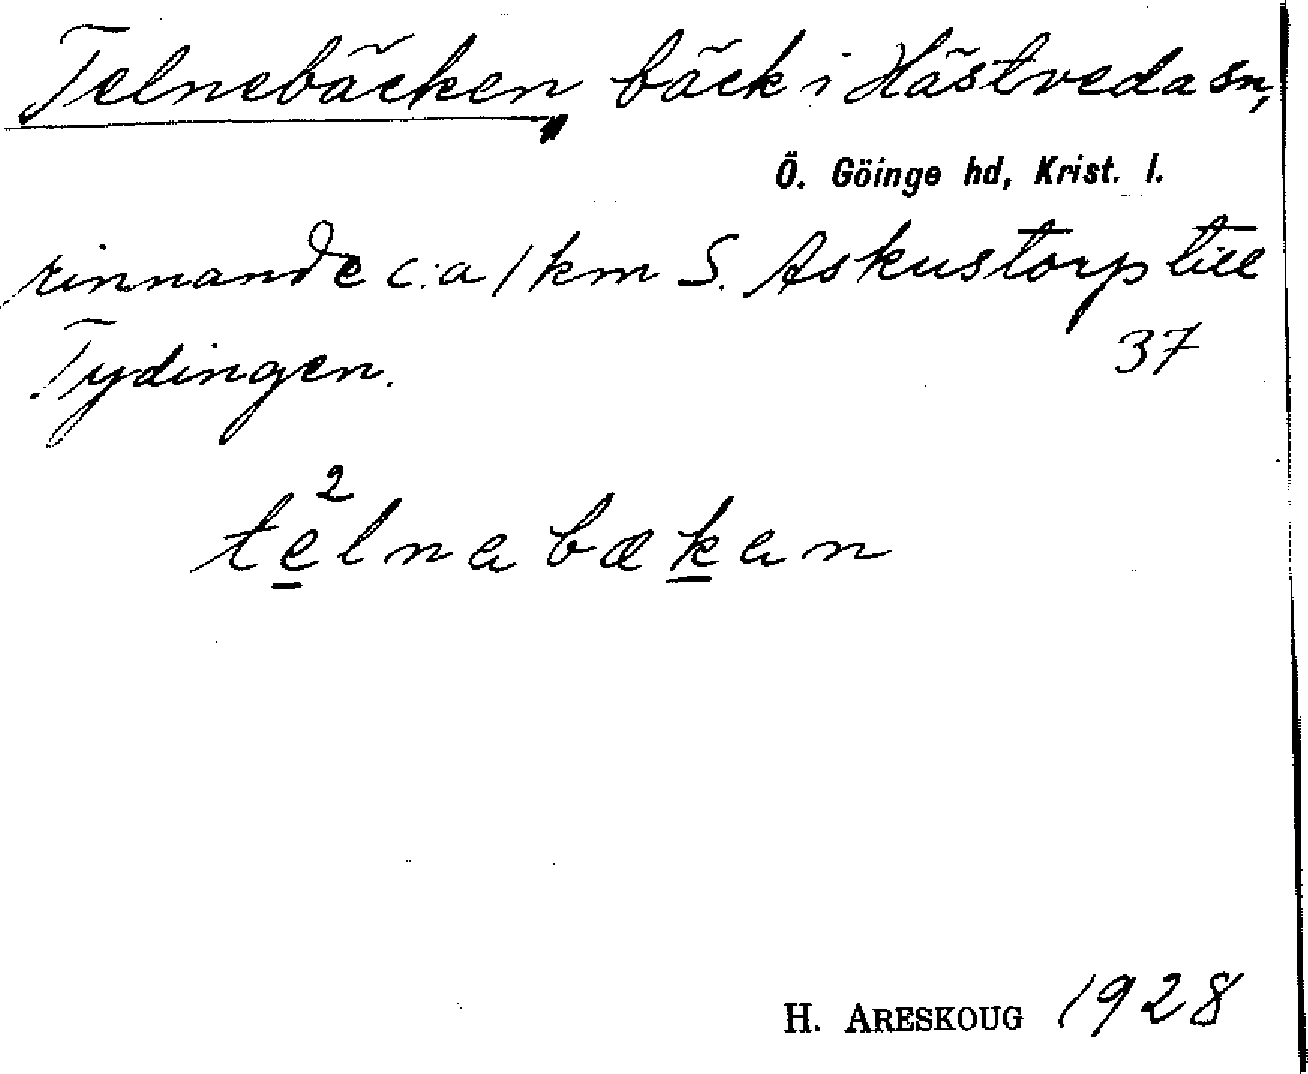 Telnebäcken, bäck i Hästveda sn,
Ö. Göinge hd, Krist. l.
rinnande c:a 1 km S. Askustorp till
Tydingen. 37
te²lnabækan
H. ARESKOUG 1928